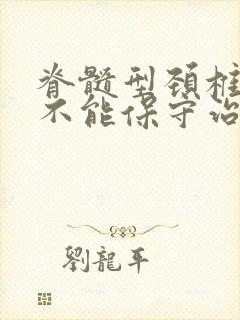 脊髓型颈椎
不能保守治
劉龍平